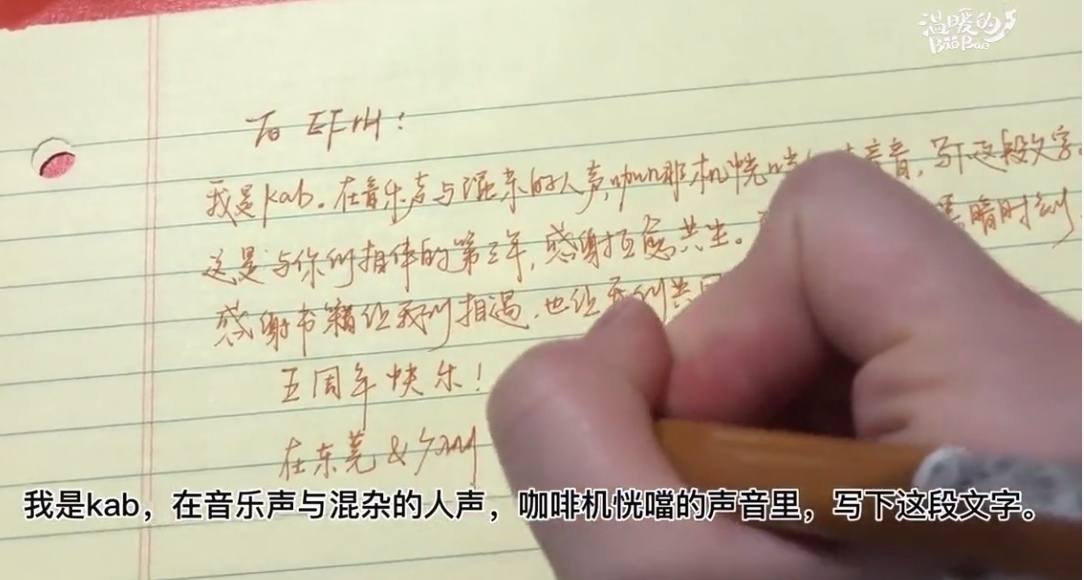 温暖的
BāoBao
To EFRH：
我是kab。在音乐声与混杂的人声，咖啡机恍 声音，写下这段文字。
这是与你们相伴的第三年，感谢 共生。 暗时刻
感谢书籍让我们相遇，也让我们共
五周年快乐！
在东莞&
我是kab，在音乐声与混杂的人声，咖啡机恍噹的声音里，写下这段文字。